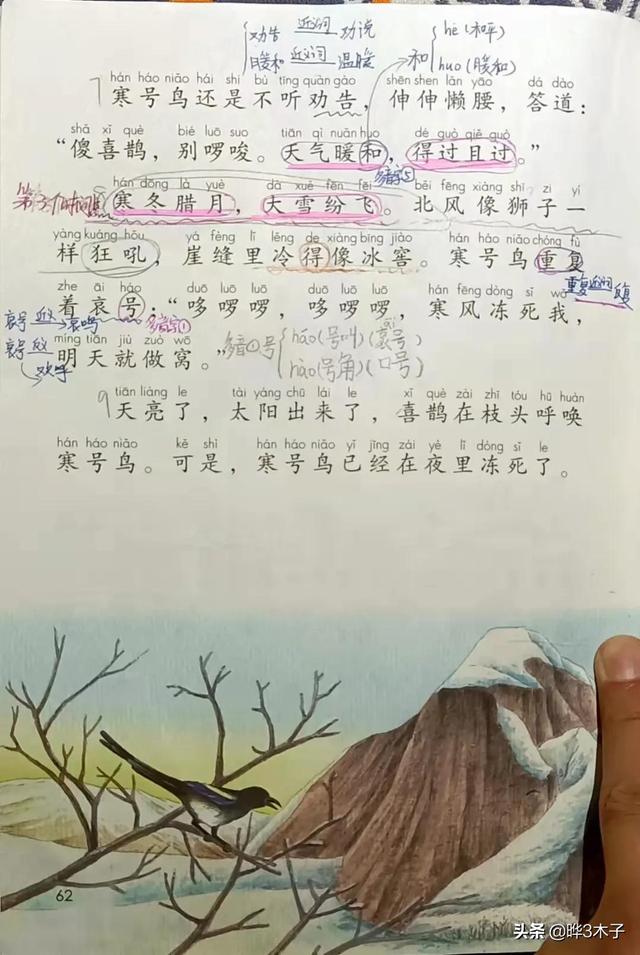 劝告 近义词 劝说
暖和 近义词 温暖
和 hé (和平)
huo (暖和)
hán háo niǎo hái shi bù tīng quàn gào shēn shen lǎn yāo dá dào
7 寒号鸟还是不听劝告，伸伸懒腰，答道：
shǎ xǐ què bié luō suo tiān qì nuǎn huo dé guò qiě guò
“傻喜鹊，别啰唆。天气暖和，得过且过。”
多音字
hán dōng là yuè dà xuě fēn fēi běi fēng xiàng shī zi yí
寒冬腊月，大雪纷飞。北风像狮子一
yàng kuáng hǒu yá fèng lǐ lěng de xiàng bīng jiào hán háo niǎo chóng fù
样狂吼，崖缝里冷得像冰窖。寒号鸟重复
重复近义词
zhe āi háo duō luō luō duō luō luō hán fēng dòng sǐ wǒ
着哀号：“哆啰啰，哆啰啰，寒风冻死我，
哀号 近义 哀鸣
多音字①
哀号 反义 欢呼
míng tiān jiù zuò wō
明天就做窝。”
多音① 号 háo (号叫) (哀号)
hào (号角) (口号)
tiān liàng le tài yáng chū lái le xǐ què zài zhī tóu hū huàn
9 天亮了，太阳出来了，喜鹊在枝头呼唤
hán háo niǎo kě shì hán háo niǎo yǐ jīng zài yè lǐ dòng sǐ le
寒号鸟。可是，寒号鸟已经在夜里冻死了。
62
头条 @晔3木子